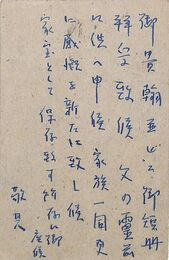 御貴翰並びに御短冊
拝受致候 父の霊前
に供へ申候 家族一同更
に感慨を新たに致し候
家宝として保存致す
座候
敬具